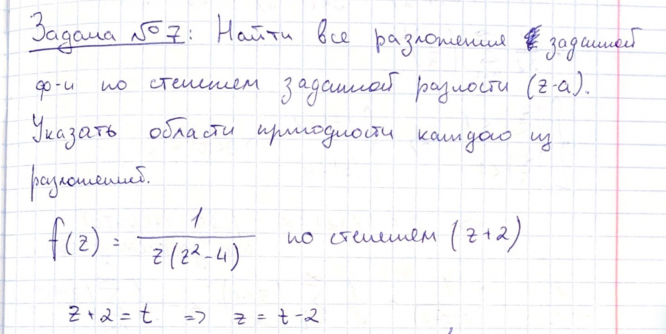 Задача №7: Найти все разложения заданной
ф-и по степеням заданной разности (z-a).
Указать области пригодности каждого из
разложений.
f(z) = 1 / z(z²-4) по степеням (z+2)
z+2 = t => z = t-2